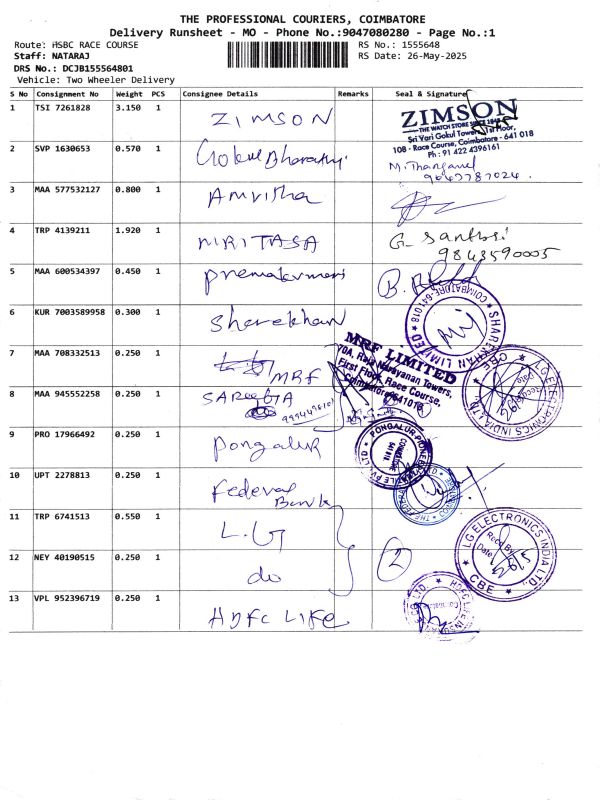 THE PROFESSIONAL COURIERS, COIMBATORE
Delivery Runsheet - MO - Phone No.:9047080280 - Page No.:1
Route: HSBC RACE COURSE
RS No.: 1555648
Staff: NATARAJ
RS Date: 26-May-2025
DRS No.: DCJB155564801
Vehicle: Two Wheeler Delivery
S No Consignment No Weight PCS Consignee Details Remarks Seal & Signature
1 TSI 7261828 3.150 1 ZIMSON
ZIMSON
THE WATCH STORE SINCE 1948
Sri Vari Gokul Towers, 1st Floor,
108 - Race Course, Coimbatore - 641 018
Ph : 91 422 4396161
2 SVP 1630653 0.570 1 Gokul Bharathy
M. Thangavel
9047787024
3 MAA 577532127 0.800 1 Amritha
4 TRP 4139211 1.920 1 MRITASA
G. Santhosi
9843590005
5 MAA 600534397 0.450 1 Premakumari
6 KUR 7003589958 0.300 1 Sharekhan
SHAREKHAN LIMITED
COIMBATORE-641 018
7 MAA 708332513 0.250 1 MRF
MRF LIMITED
70A, Raja Narayanan Towers,
First Floor, Race Course,
Coimbatore-641018
LG ELECTRONICS INDIA LTD.
CBE
8 MAA 945552258 0.250 1 SAREETA
9 PRO 17966492 0.250 1 Pongalur
PONGALUR PIONEER
COIMBATORE
641 018
10 UPT 2278813 0.250 1 Federal
Bank
11 TRP 6741513 0.550 1 L.G
LG ELECTRONICS INDIA LTD.,
Recd By
Date
26/5
CBE
12 NEY 40190515 0.250 1 do
2
13 VPL 952396719 0.250 1 HDFC LIFE
HDFC LIFE INSURANCE